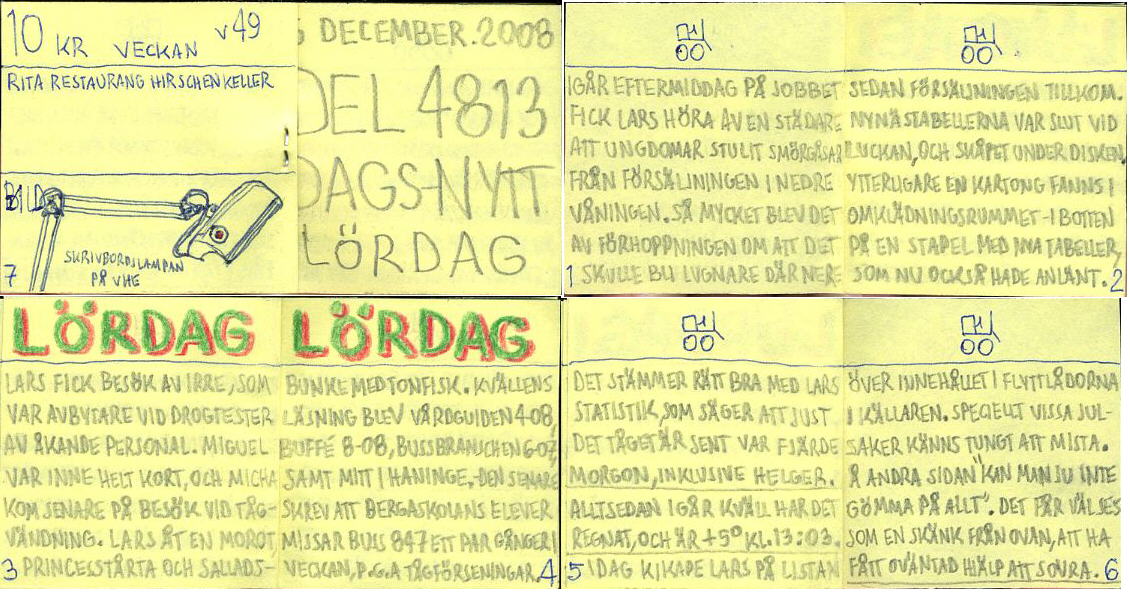 10 KR VECKAN V49
RITA RESTAURANG HIRSCHENKELLER
BILD
SKRIVBORDSLAMPAN
PÅ VHG
7
DECEMBER.2008
DEL 4813
DAGS-NYTT
LÖRDAG
IGÅR EFTERMIDDAG PÅ JOBBET
FICK LARS HÖRA AV EN STÄDARE
ATT UNGDOMAR STULIT SMÖRGÅSAR
FRÅN FÖRSÄLJNINGEN I NEDRE
VÅNINGEN. SÅ MYCKET BLEV DET
AV FÖRHOPPNINGEN OM ATT DET
1 SKULLE BLI LUGNARE DÄR NERE
SEDAN FÖRSÄLJNINGEN TILLKOM.
NYNÄSTABELLERNA VAR SLUT VID
LUCKAN, OCH SKÅPET UNDER DISKEN,
YTTERLIGARE EN KARTONG FANNS I
OMKLÄDNINGSRUMMET-I BOTTEN
PÅ EN STAPEL MED NYA TABELLER,
SOM NU OCKSÅ HADE ANLÄNT. 2
LÖRDAG
LARS FICK BESÖK AV IRRE, SOM
VAR AVBYTARE VID DROGTESTER
AV ÅKANDE PERSONAL. MIGUEL
VAR INNE HELT KORT, OCH MICHA
KOM SENARE PÅ BESÖK VID TÅG-
VÄNDNING. LARS ÅT EN MOROT
3 PRINCESSTÅRTA OCH SALLADS-
LÖRDAG
BUNKE MED TONFISK. KVÄLLENS
LÄSNING BLEV VÅRDGUIDEN 4-08,
BUFFÉ 8-08, BUSSBRANSCHEN 6-07,
SAMT MITT I HANINGE,-DEN SENARE
SKREV ATT BERGASKOLANS ELEVER
MISSAR BUSS 847 ETT PAR GÅNGER I
VECKAN, P.G.A TÅGFÖRSENINGAR. 4
DET STÄMMER RÄTT BRA MED LARS
STATISTIK, SOM SÄGER ATT JUST
DET TÅGET ÄR SENT VAR FJÄRDE
MORGON, INKLUSIVE HELGER.
ALLTSEDAN IGÅR KVÄLL HAR DET
REGNAT, OCH ÄR +5° KL.13:03.
5 IDAG KIKADE LARS PÅ LISTAN
ÖVER INNEHÅLLET I FLYTTLÅDORNA
I KÄLLAREN. SPECIELLT VISSA JUL-
SAKER KÄNNS TUNGT ATT MISTA.
Å ANDRA SIDAN "KAN MAN JU INTE
GÖMMA PÅ ALLT". DET FÅR VÄL SES
SOM EN SKÄNK FRÅN OVAN, ATT HA
FÅTT OVÄNTAD HJÄLP ATT SOVRA. 6